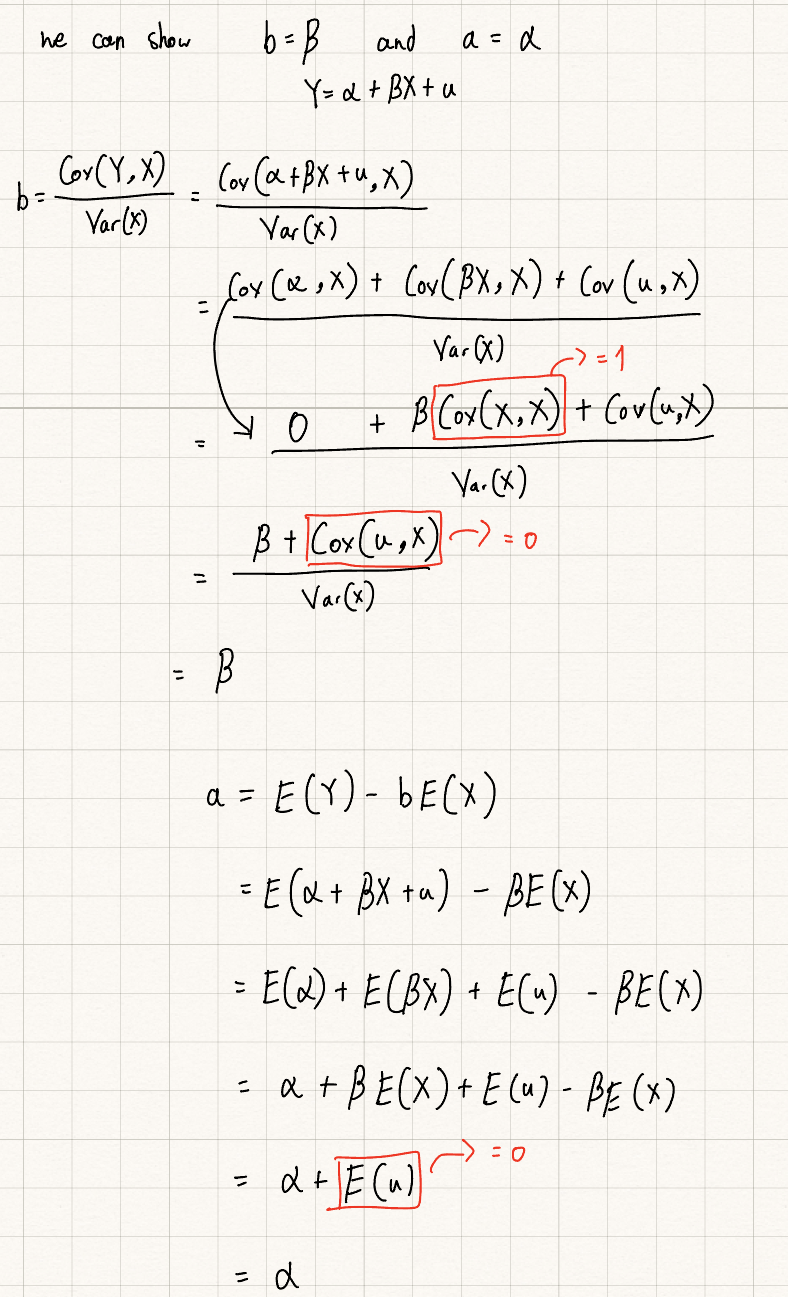 we can show b = β and a = α
Y = α + βX + u
b = Cov(Y, X) / Var(X) = Cov(α + βX + u, X) / Var(X)
= Cov(α, X) + Cov(βX, X) + Cov(u, X) / Var(X)
= 0 + β Cov(X, X) → = 1 + Cov(u, X) / Var(X)
= β + Cov(u, X) → = 0 / Var(X)
= β
a = E(Y) - bE(X)
= E(α + βX + u) - βE(X)
= E(α) + E(βX) + E(u) - βE(X)
= α + βE(X) + E(u) - βE(X)
= α + E(u) → = 0
= α